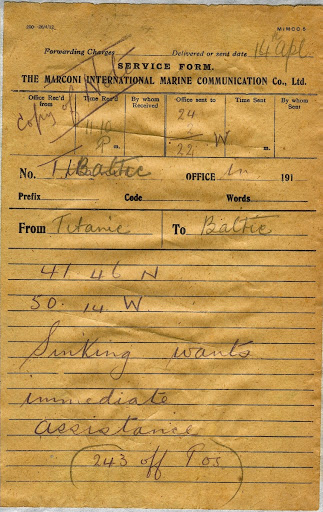 Forwarding Charges Delivered or send date 14 Apl
SERVICE FORM.
THE MARCONI INTERNATIONAL MARINE COMMUNICATION Co., Ltd.
Office Rec'd from Time Rec'd By whom Received Office sent to Time Sent By whom Sent
Copy of
11.10 24
P m. 22 W m.
No. Baltic OFFICE 191
Prefix Code Words
From Titanic To Baltic
41.46 N
50.14 W.
Sinking wants
immediate
assistance
243 off Pos